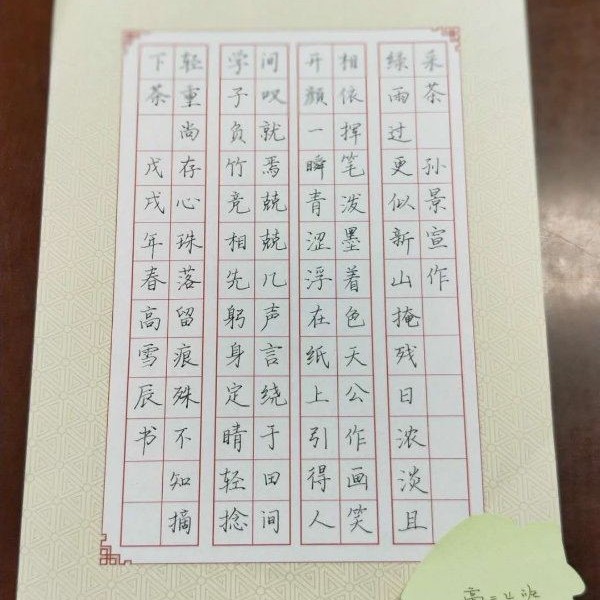 采茶 孙景宣作
绿雨过更似新山掩残日浓淡且
相依挥笔泼墨着色天公作画笑
开颜一瞬青涩浮在纸上引得人
间叹就焉兢兢几声言绕于田间
学子负竹竞相先躬身定睛轻捻
轻重尚存心珠落留痕殊不知摘
下茶 戊戌年春高雪辰书
高二4班